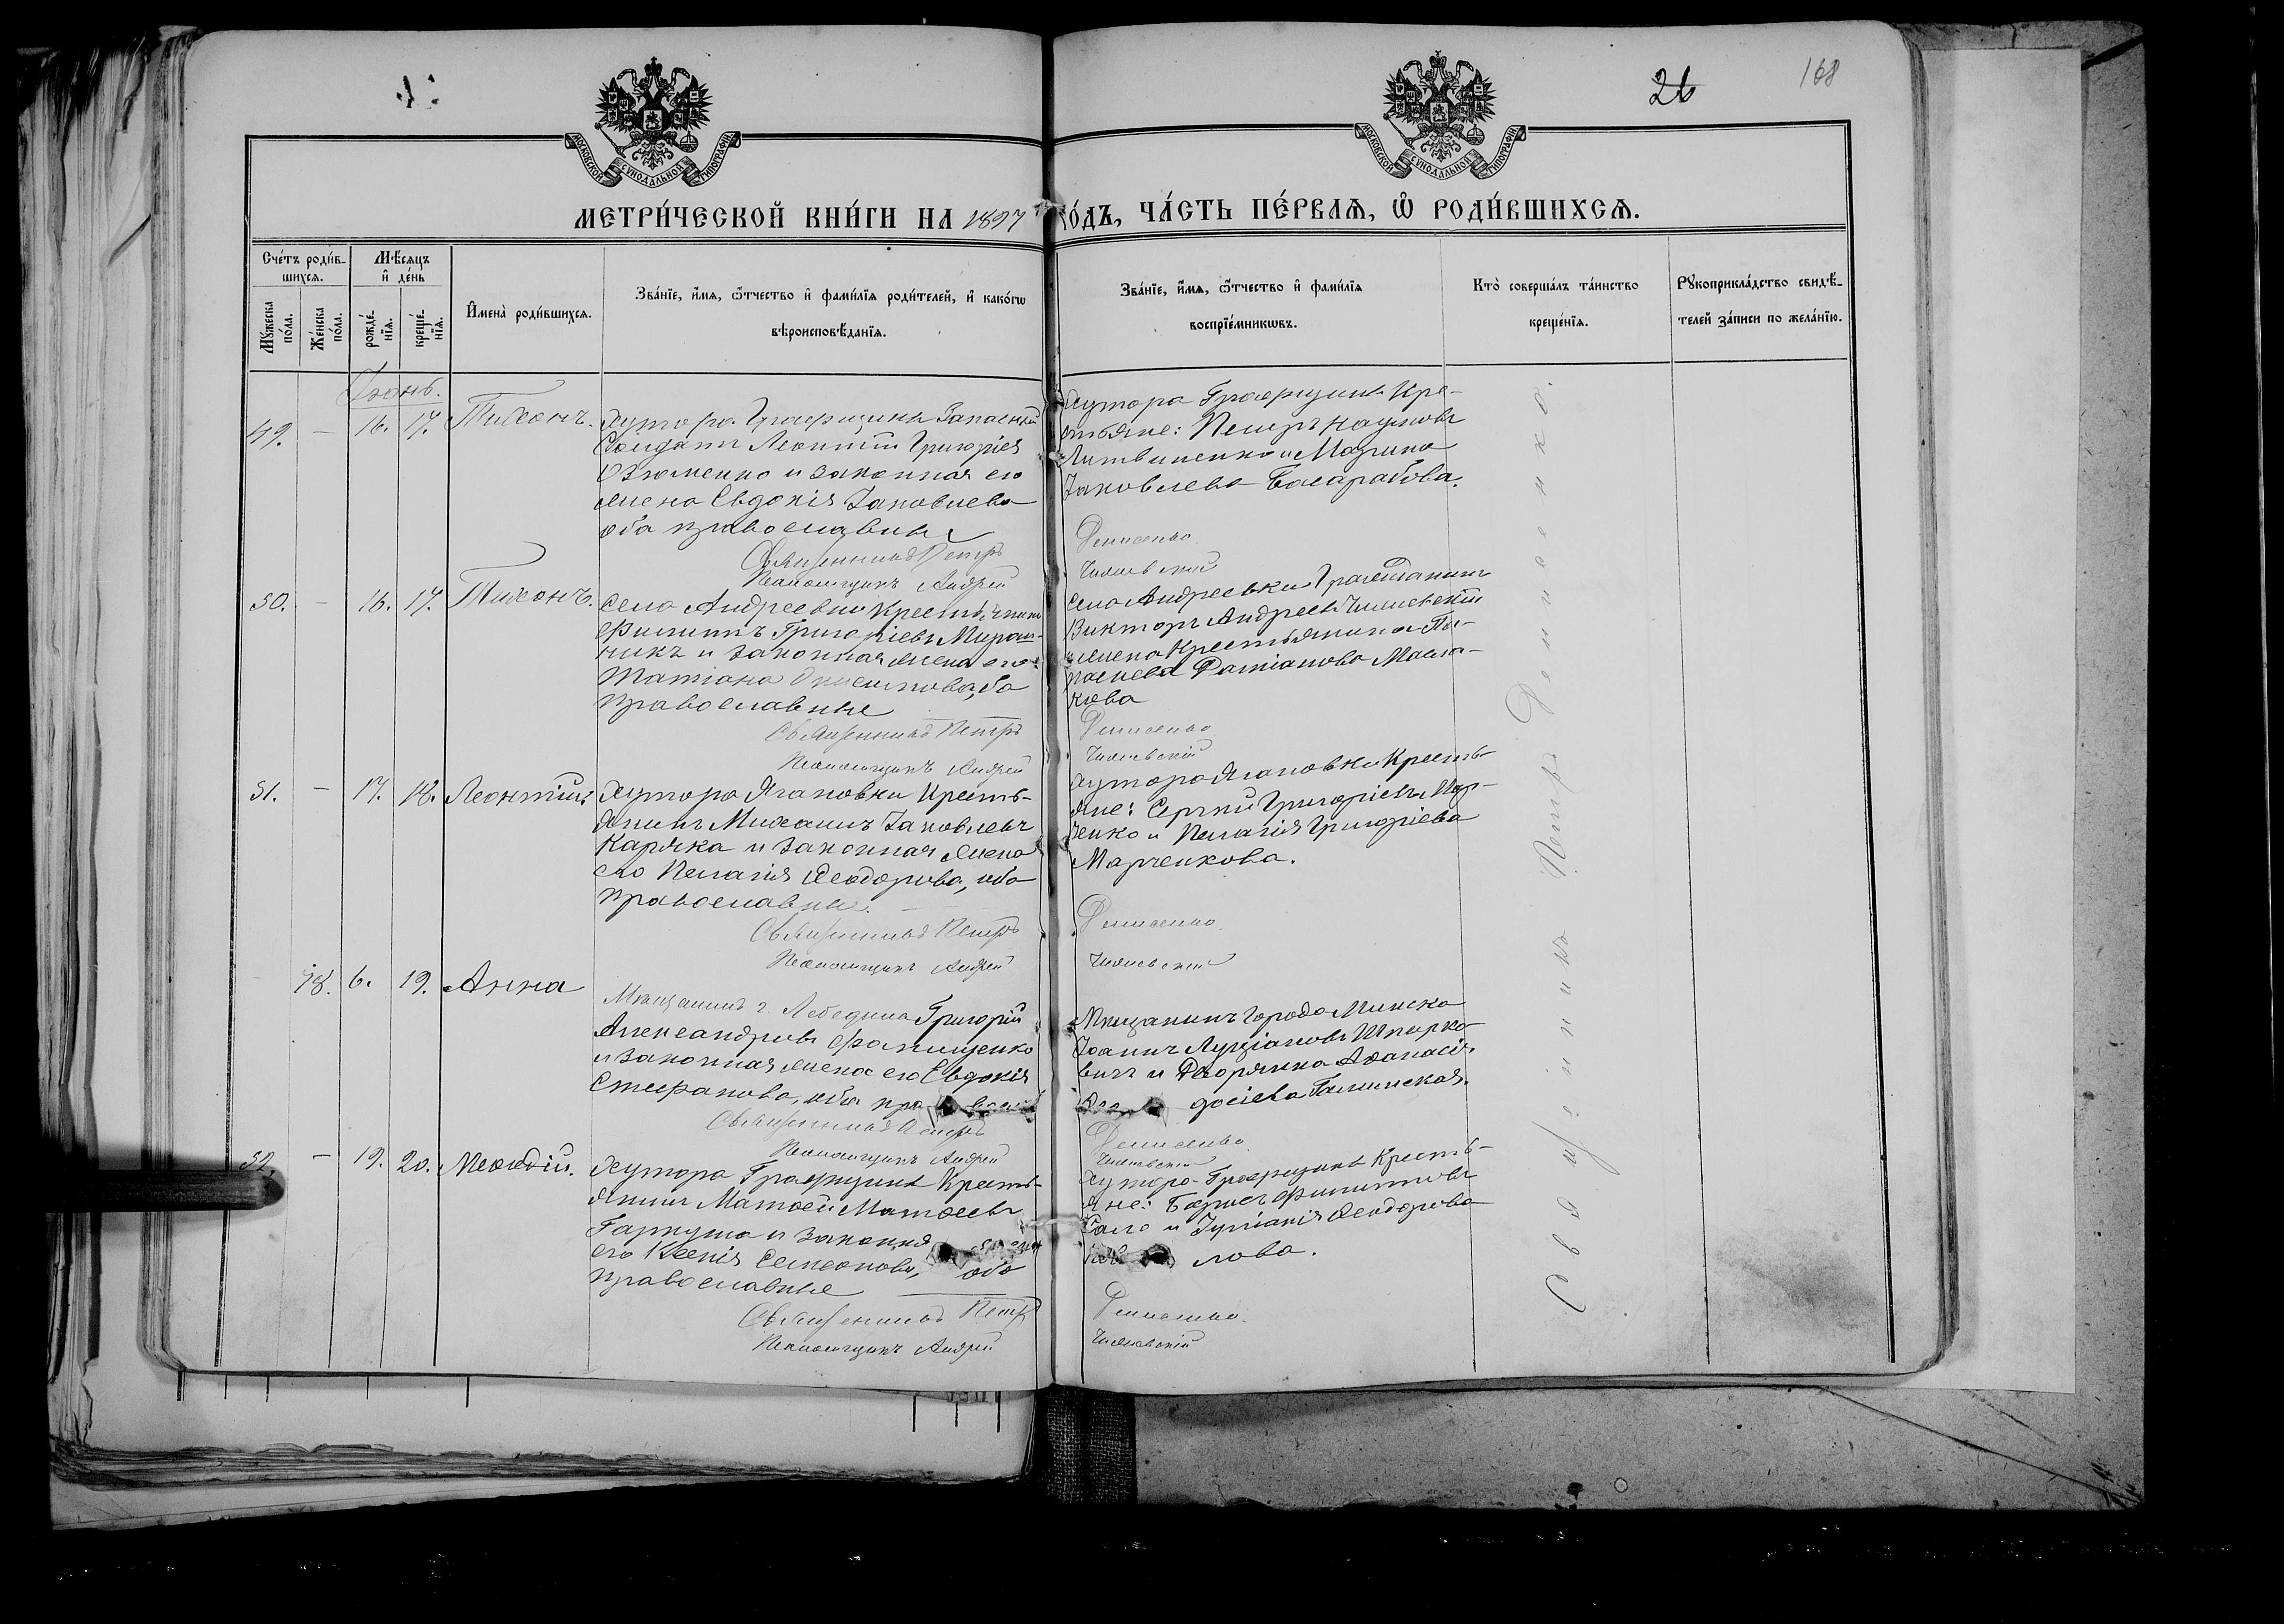 26
168
МОСКОВСКОЙ СѴНОДАЛЬНОЙ ТИПОГРАФІИ
МОСКОВСКОЙ СѴНОДАЛЬНОЙ ТИПОГРАФІИ
МЕТРИ́ЧЕСКОЙ КНИ́ГИ НА 1897 ГО́ДЪ, ЧА́СТЬ ПЕ́РВАѦ, Ѽ РОДИ́ВШИХСѦ.
Сче́тъ роди́в-
шихсѧ.
Мѣ́сѧцъ
и҆ де́нь
Мꙋ́жеска по́ла.
Же́нска по́ла.
рожде́-
нїѧ.
креще́-
нїѧ.
И҆мена̀ роди́вшихсѧ.
Зва́нїе, и҆́мѧ, ѻ҆́тчество и҆ фами́лїѧ роди́телей, и҆ како́гѡ
вѣроисповѣ́данїѧ.
Зва́нїе, и҆́мѧ, ѻ҆́тчество и҆ фами́лїѧ
воспрїе́мникѡвъ.
Кто̀ соверша́лъ та́инство
креще́нїѧ.
Рꙋкоприкла́дство свидѣ́-
телей за́писи по жела́нїю.
Іюнь.
49. — 16. 17. Тихонъ.
Хутора Графщины Запасный
Солдатъ Леонтій Григоріев
и законная его
жена Евдокія Іаковлева
оба православные
Священникъ Петръ
Псаломщикъ Андрей
Хутора Графщины Кре-
стьяне: Петръ Наумовъ
Литвиненко и Марина
Іаковлева Басарабова.
Денисенко
Чижевскій
50. — 16. 17. Тихонъ.
Села Андреевки Крестьянинъ
Филиппъ Григоріевъ Мирош-
никъ и законная жена его
Татіана Онисимова, оба
православные
Священникъ Петръ
Псаломщикъ Андрей
Села Андреевки Гражданинъ
Викторъ Андреевъ Чижевскій
и жена Крестьянина Па-
раскева Даміанова Масла-
кова
Денисенко
Чижевскій
51. — 17. 18. Леонтій
Хутора Ягановки Кресть-
янинъ Михаилъ Іаковлевъ
Каряка и законная жена
его Пелагія Ѳеодорова, оба
православные.
Священникъ Петръ
Псаломщикъ Андрей
Хутора Ягановки Кресть-
яне: Сергій Григоріевъ Мар-
ченко и Пелагія Григоріева
Марченкова.
Денисенко
Чижевскій
48. 6. 19. Анна
Мѣщанинъ г. Лебедина Григорій
Александровъ Фанищенко
и законная жена его Евдокія
Стефанова, оба пра
Священникъ Петръ
Псаломщикъ Андрей
Мѣщанинъ города Минска
Іоаннъ Луціановъ Шпирко-
вичъ и Дворянка Аѳанасія
досіева Галинская.
Денисенко
Чижевскій
52. — 19. 20. Меѳодій.
Хутора Графщины Кресть-
янинъ Матѳей Матѳеевъ
Гаркуша и законная
его Ксенія Семеонова, оба
православные
Священникъ Петръ
Псаломщикъ Андрей
Хутора Графщины Кресть-
яне: Борисъ Филипповъ
Сало и Іуліанія Ѳеодорова
лова.
Денисенко
Чижевскій
Священникъ Петръ Денисенко.